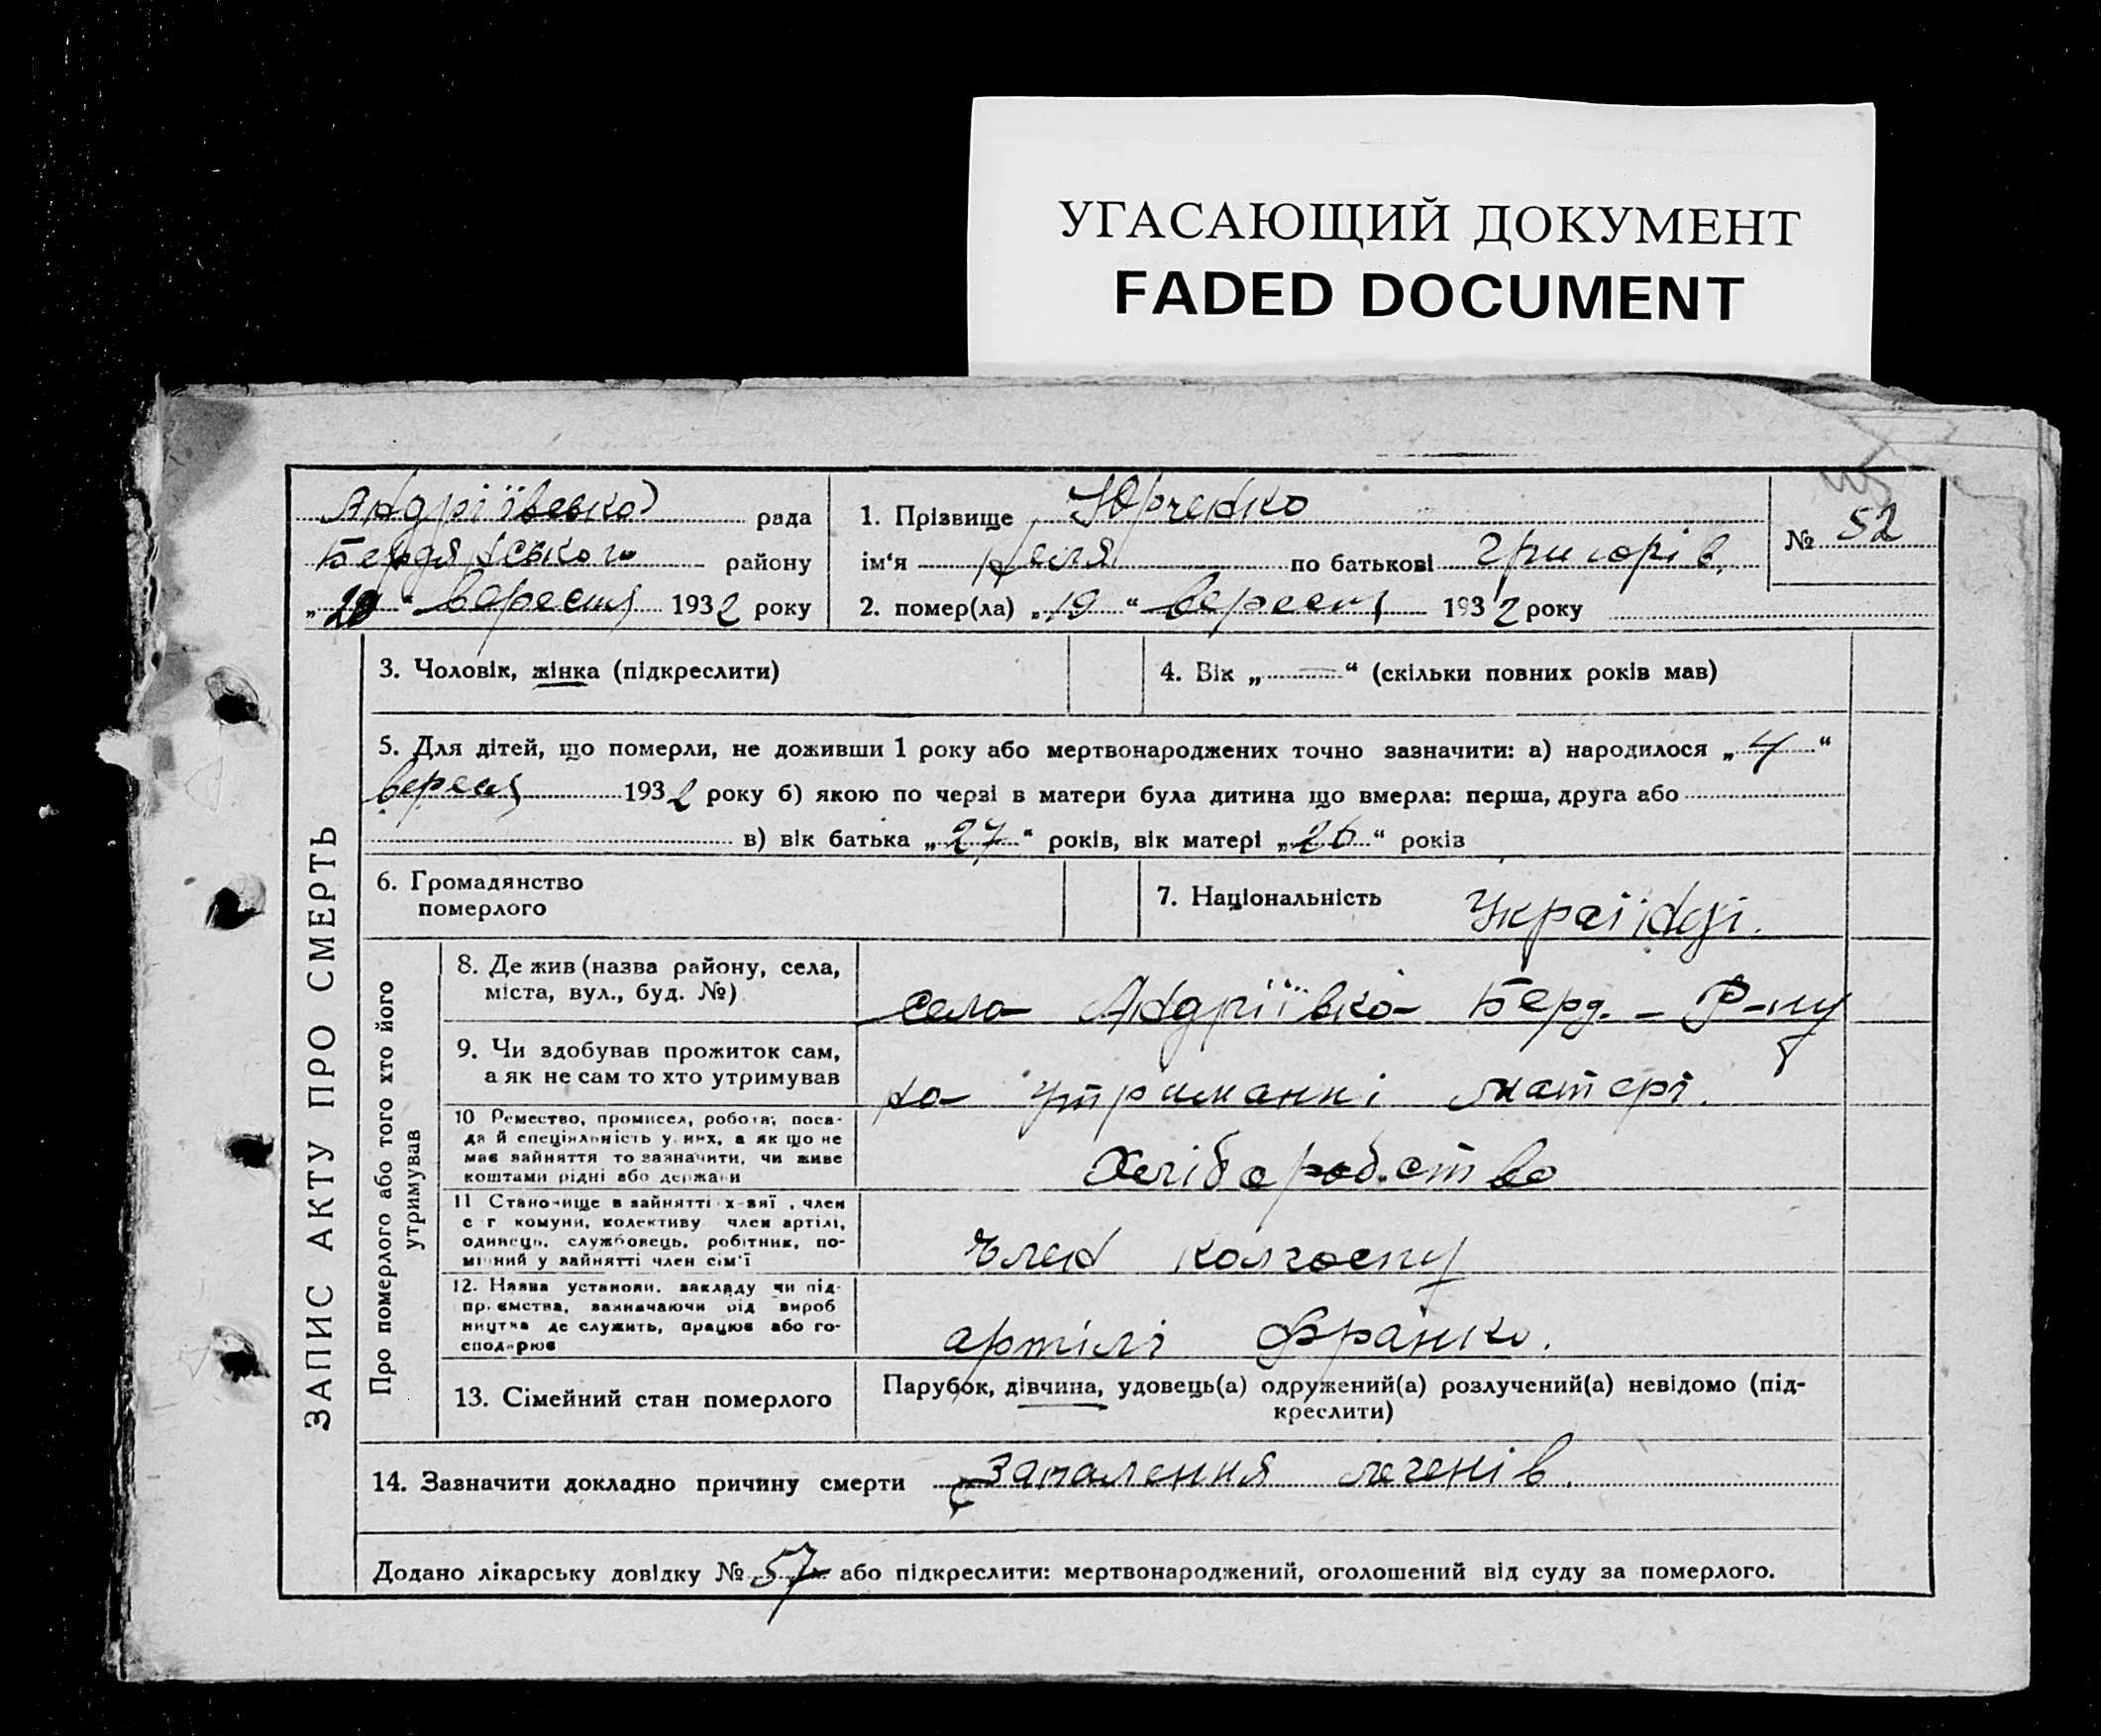 УГАСАЮЩИЙ ДОКУМЕНТ
FADED DOCUMENT
Андріївська рада
Бердянського району
„20“ вересня 1932 року
1. Прізвище Юрченко
ім‘я Неля по батькові Григорів.
2. помер(ла) „19“ вересня 1932 року
№ 52
ЗАПИС АКТУ ПРО СМЕРТЬ
3. Чоловік, жінка (підкреслити)
4. Вік „ “ (скільки повних років мав)
5. Для дітей, що померли, не доживши 1 року або мертвонароджених точно зазначити: а) народилося „4“
вересня 1932 року б) якою по черзі в матери була дитина що вмерла: перша, друга або
в) вік батька „27“ років, вік матері „26“ років
6. Громадянство
померлого
7. Національність Українці.
Про померлого або того хто його
утримував
8. Де жив (назва району, села,
міста, вул., буд. №)
село Андріївка Берд. - Р-ну
9. Чи здобував прожиток сам,
а як не сам то хто утримував
на утриманні матері.
10 Ремество, промисел, робота, поса-
да й спеціяльність у них, а як що не
має зайняття то зазначити, чи живе
коштами рідні або держави
Хліборобство
11 Становище в зайнятті х-вяї, член
с г комуни, колективу член артілі,
одинець, службовець, робітник, по-
мічний у зайнятті член сім'ї
член колгоспу
12. Назва установи, закладу чи під-
приємства, зазначаючи рід вироб
ництва де служить, працює або го-
сподарює
артілі Франко.
13. Сімейний стан померлого
Парубок, дівчина, удовець(а) одружений(а) розлучений(а) невідомо (під-
креслити)
14. Зазначити докладно причину смерти Запалення легенів.
Додано лікарську довідку № 57 або підкреслити: мертвонароджений, оголошений від суду за померлого.